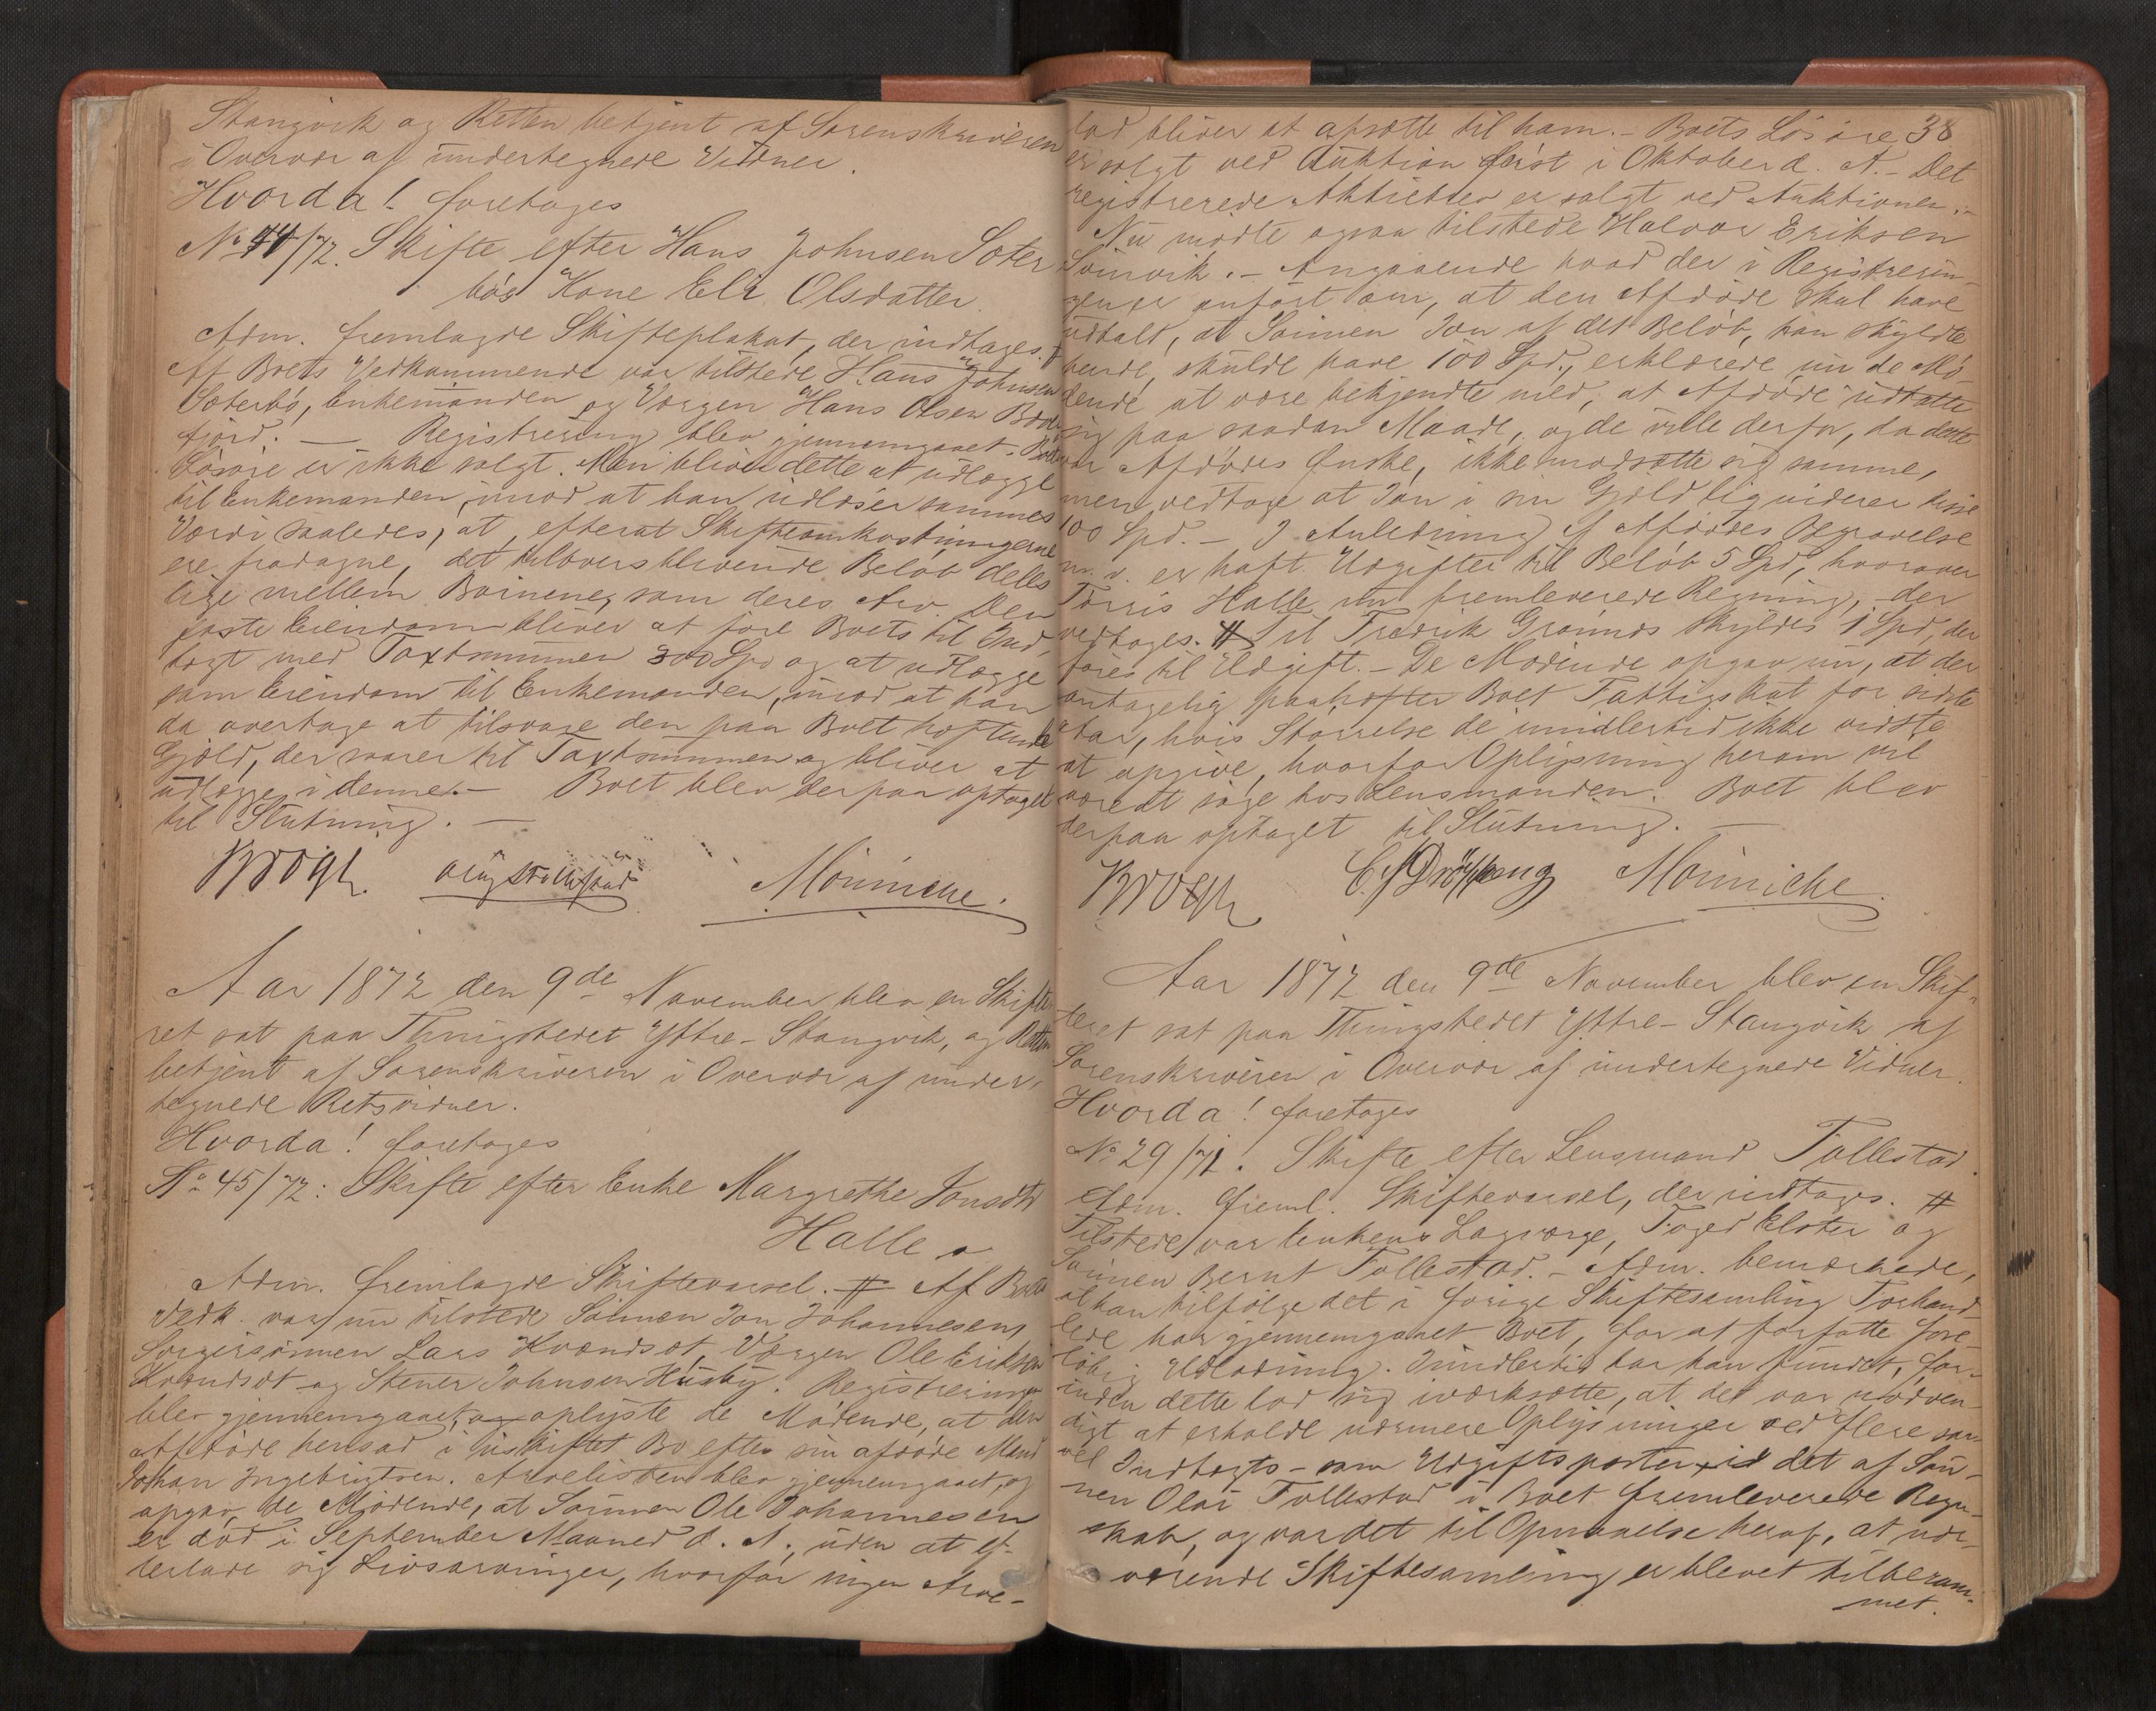 Stangvik og Retten betjent af Sorenskriveren
i Overvær af undertegnede Vidner.
Hvorda! foretages
No 44/72. Skifte efter Hans Johnsen Sæter
bøs Kone Eli Olsdatter.
Adm. fremlagde Skifteplakat, der indtages. #
Af Boets Vedkommende var tilstede Hans Johnsen
Sæterbø, Enkemanden og Værgen Hans Olsen
fjord. — Registrering blev gjennemgaaet. Boets
Løsøre er ikke solgt. Men bliver dette at udlægge
til Enkemanden, imod at han udløser sammes
Værdi saaledes, at, efterat Skifteomkostningerne
ere fradragne, det tiloversblivende Beløb deles
lige mellem Børnene, som deres Arv. Den
faste Eiendom bliver at føre Boets til Ind-
tægt med Taxtsummen 300 Spd og at udlægge
som Eiendom til Enkemanden, imod at han
da overtage at tilsvare den paa Boet heftende
Gjæld, der svarer til Taxtsummen og bliver at
udlægge i denne. — Boet blev derpaa optaget
til Slutning. —
Krogh. Mønniche.
Aar 1872 den 9de November blev en Skifte
ret sat paa Thingstedet Yttre-Stangvik, og Retten
betjent af Sorenskriveren i Overvær af under-
tegnede Retsvidner.
Hvorda! foretages
No 45/72: Skifte efter Enke Margrethe Jonsdtr
Halle
Adm. fremlagde Skiftevarsel. # Af Boets
Vedk. var nu tilstede Sønnen Jon Johannesen,
Svigersønnen Lars Kvandsøt, Værgen Ole Eriksen
Kvandsøt og Stener Johnsen Husby. Registreringen
blev gjennemgaaet, og oplyste de Mødende, at den
Afdøde hensad i uskiftet Bo efter sin afdøde Mand
Johan Ingebrigtsen. Arvelisten blev gjennemgaaet, og
opgav de Mødende, at Sønnen Ole Johannesen
er død i September Maaned d. A., uden at ef-
terlade sig Livsarvinger, hvorfor ingen Arve-
38
lod bliver at afsætte til ham. – Boets Løsøre
er solgt ved Auktion først i Oktober d. A. – Det
registrerede er solgt ved Auktionen. –
Nu mødte ogsaa tilstede Halvor Eriksen
Svinvik. – Angaaende hvad der i Registrerin-
gen er anført om, at den Afdøde skal have
udtalt, at Sønnen Jon af det Beløb, han skyldte
hende, skulde have 100 Spd., erklærede nu de Mø-
dende at være bekjendte med, at Afdøde udtalte
sig paa saadan Maade, og de ville derfor, da dette
var Afdødes Ønske, ikke modsætte sig samme,
men vedtage at Jon i sin Gjæld liquiderer disse
100 Spd. – I Anledning af Afdødes Begravelse
m. v. er havt Udgifter til Beløb 5 Spd, hvorover
Torris Halle nu fremleverede Regning, der
vedtages. # Til Fredrik skyldes 1 Spd, der
føres til Udgift. – De Mødende opgav nu, at der
antagelig paahefter Boet Fattigskat for sidste
Aar, hvis Størrelse de imidlertid ikke vidste
at opgive, hvorfor Oplysning herom vil
være at søge hos Lensmanden. Boet blev
derpaa optaget til Slutning. —
Krogh Mønniche
Aar 1872 den 9de November blev en Skif-
teret sat paa Thingstedet Yttre-Stangvik af
Sorenskriveren i Overvær af undertegnede Vidner.
Hvorda! foretages
No 29/71. Skifte efter Lensmand Tallestad.
Adm. freml. Skiftevarsel, der indtages. #
Tilstede var Enkens Laugværge, Foged Elster og
Sønnen Bernt Tallestad. – Adm. bemærkede,
at han tilfølge det i forige Skiftesamling Forhand-
lede har gjennemgaaet Boet, for at forfatte fore-
løbig Udlodning. Imidlertid har han fundet, for-
inden dette lod sig iværksætte, at det var nødven-
digt at erholde nærmere Oplysninger ved flere saa-
vel Indtægts- som Udgiftsposter i det af Søn-
nen Olai Tallestad i Boet fremleverede Regn-
skab, og var det til Opnaaelse heraf, at nær-
værende Skiftesamling er blevet tilberam-
met.